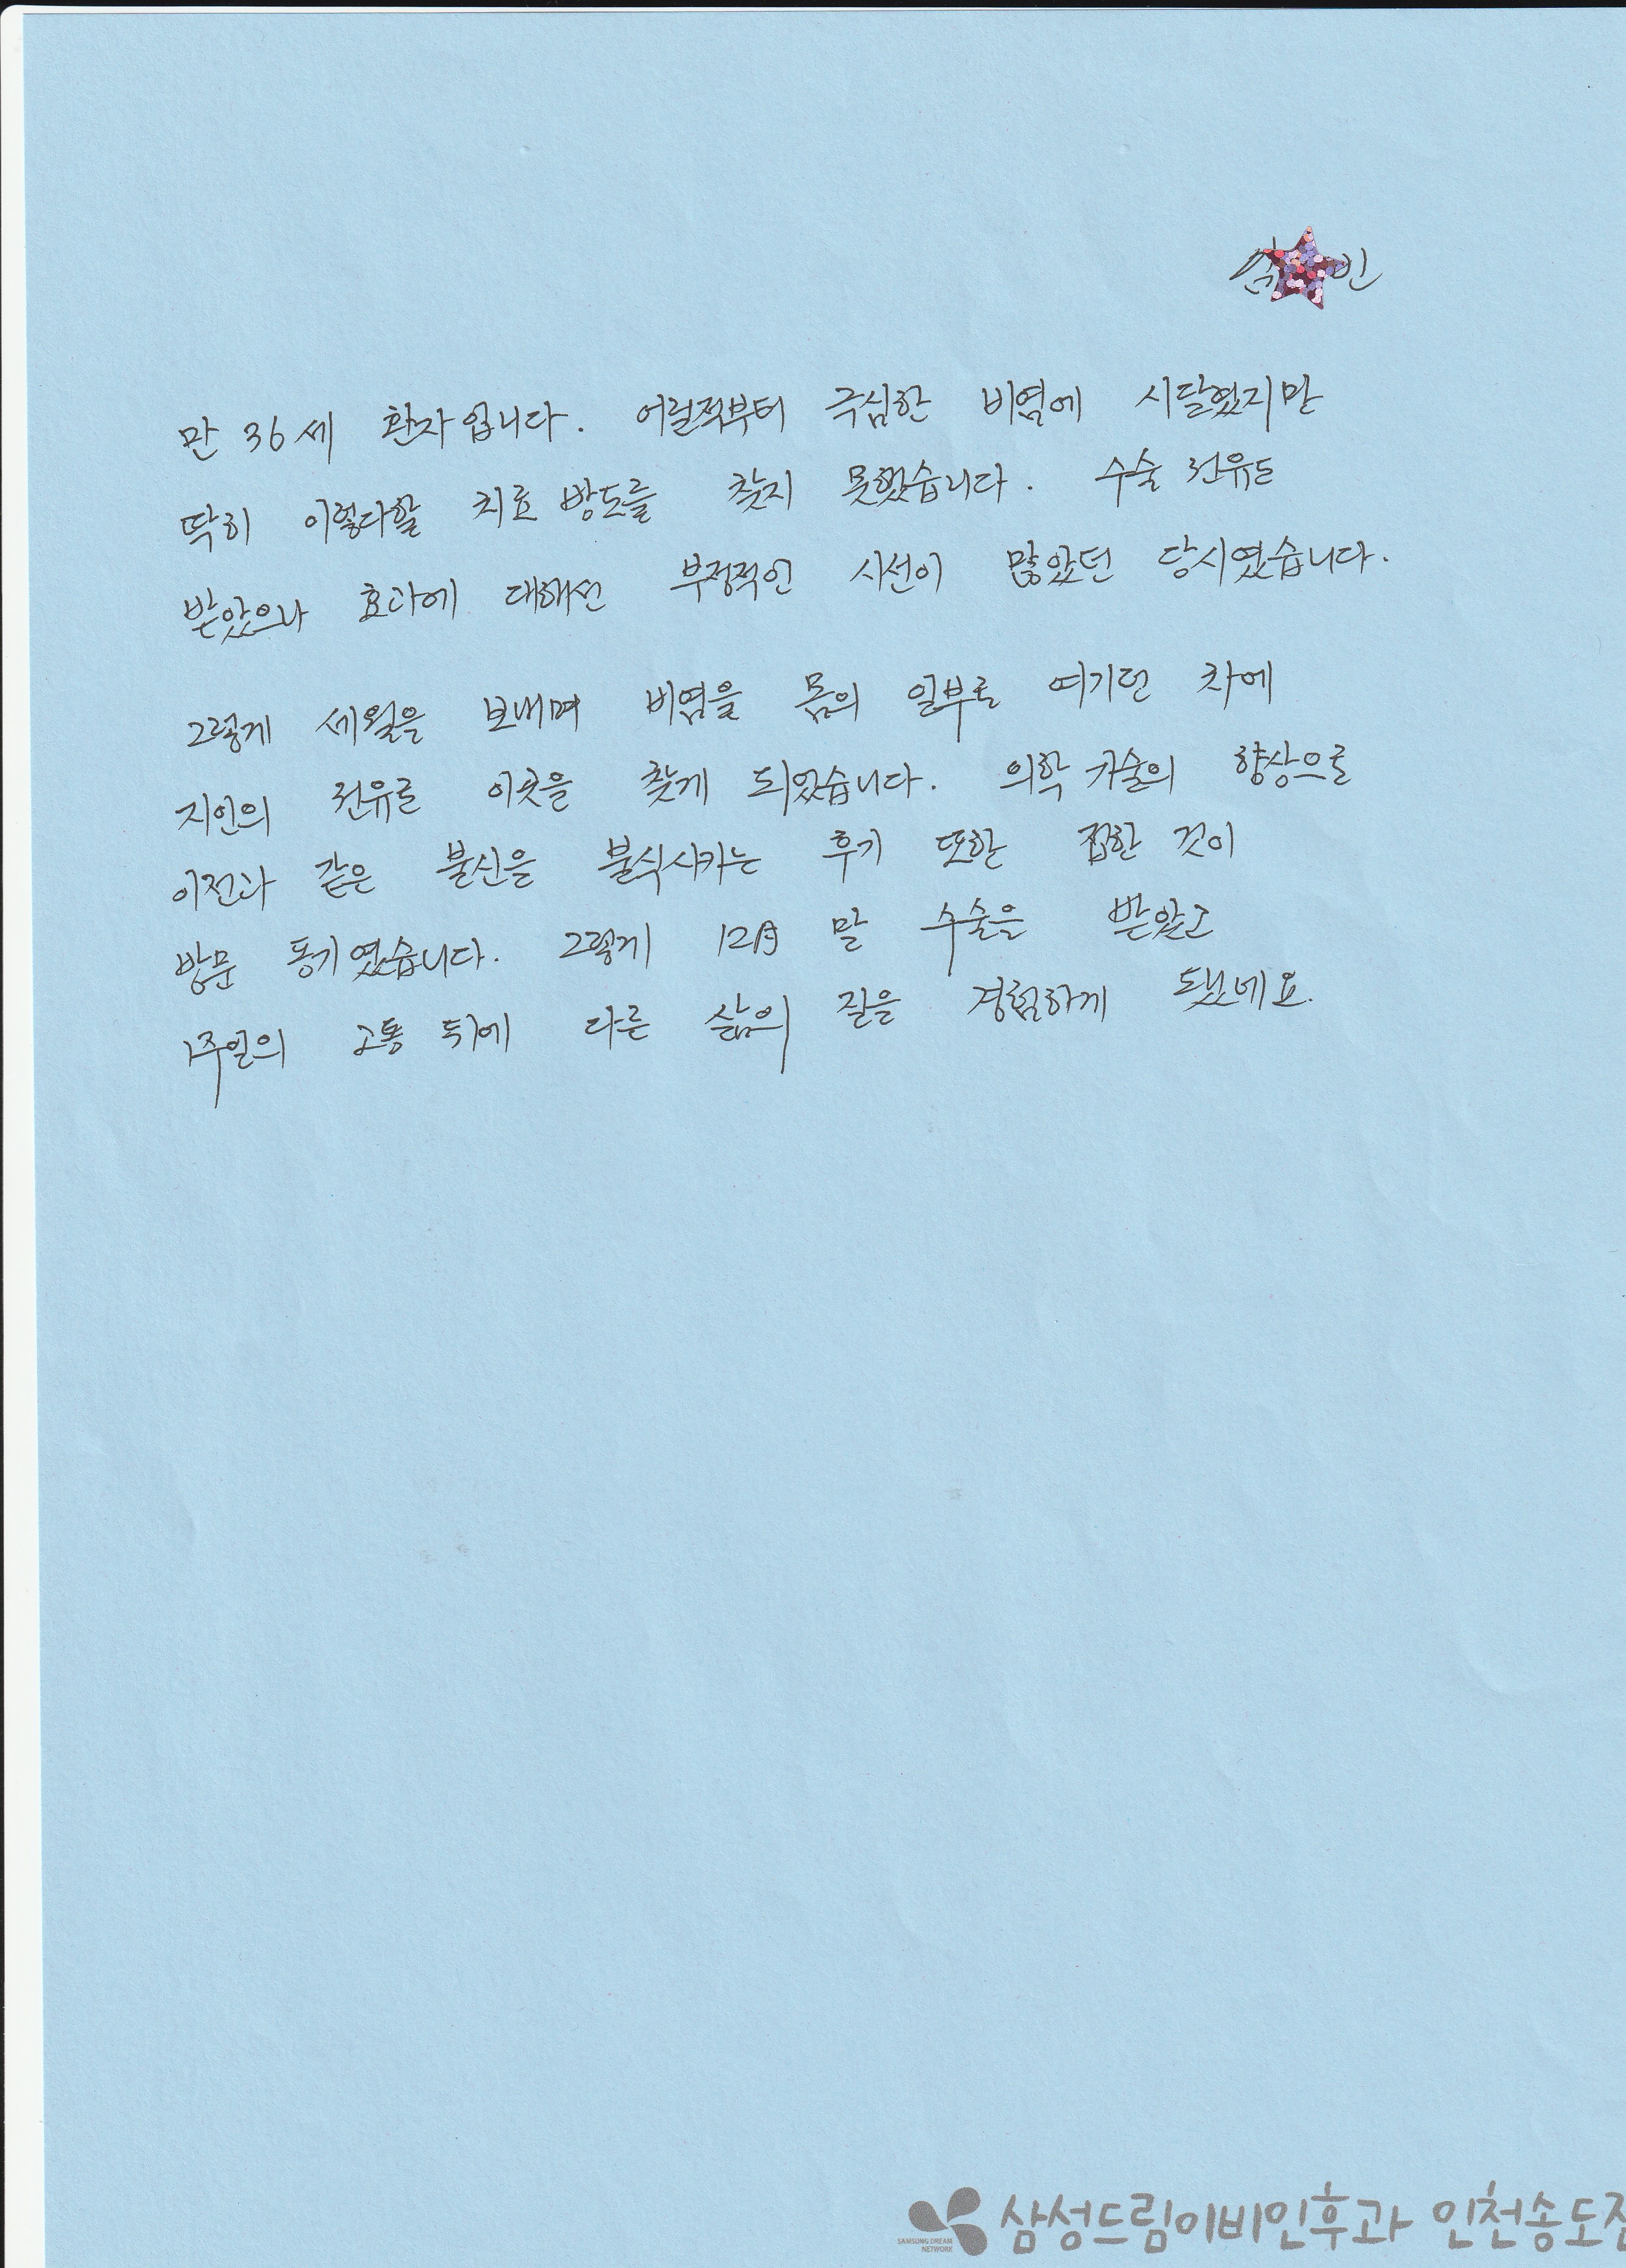 빈
만 36세 환자입니다. 어릴적부터 극심한 비염에 시달렸지만
딱히 이렇다할 치료 방도를 찾지 못했습니다. 수술 권유도
받았으나 효과에 대해선 부정적인 시선이 많았던 당시였습니다.
그렇게 세월을 보내며 비염을 몸의 일부로 여기던 차에
지인의 권유로 이곳을 찾게 되었습니다. 의학 기술의 향상으로
이전과 같은 불신을 불식시키는 후기 또한 접한 것이
방문 동기였습니다. 그렇게 12月 말 수술을 받았고
1주일의 고통 뒤에 다른 삶의 질을 경험하게 됐네요.
SAMSUNG DREAM
NETWORK
삼성드림이비인후과 인천송도점